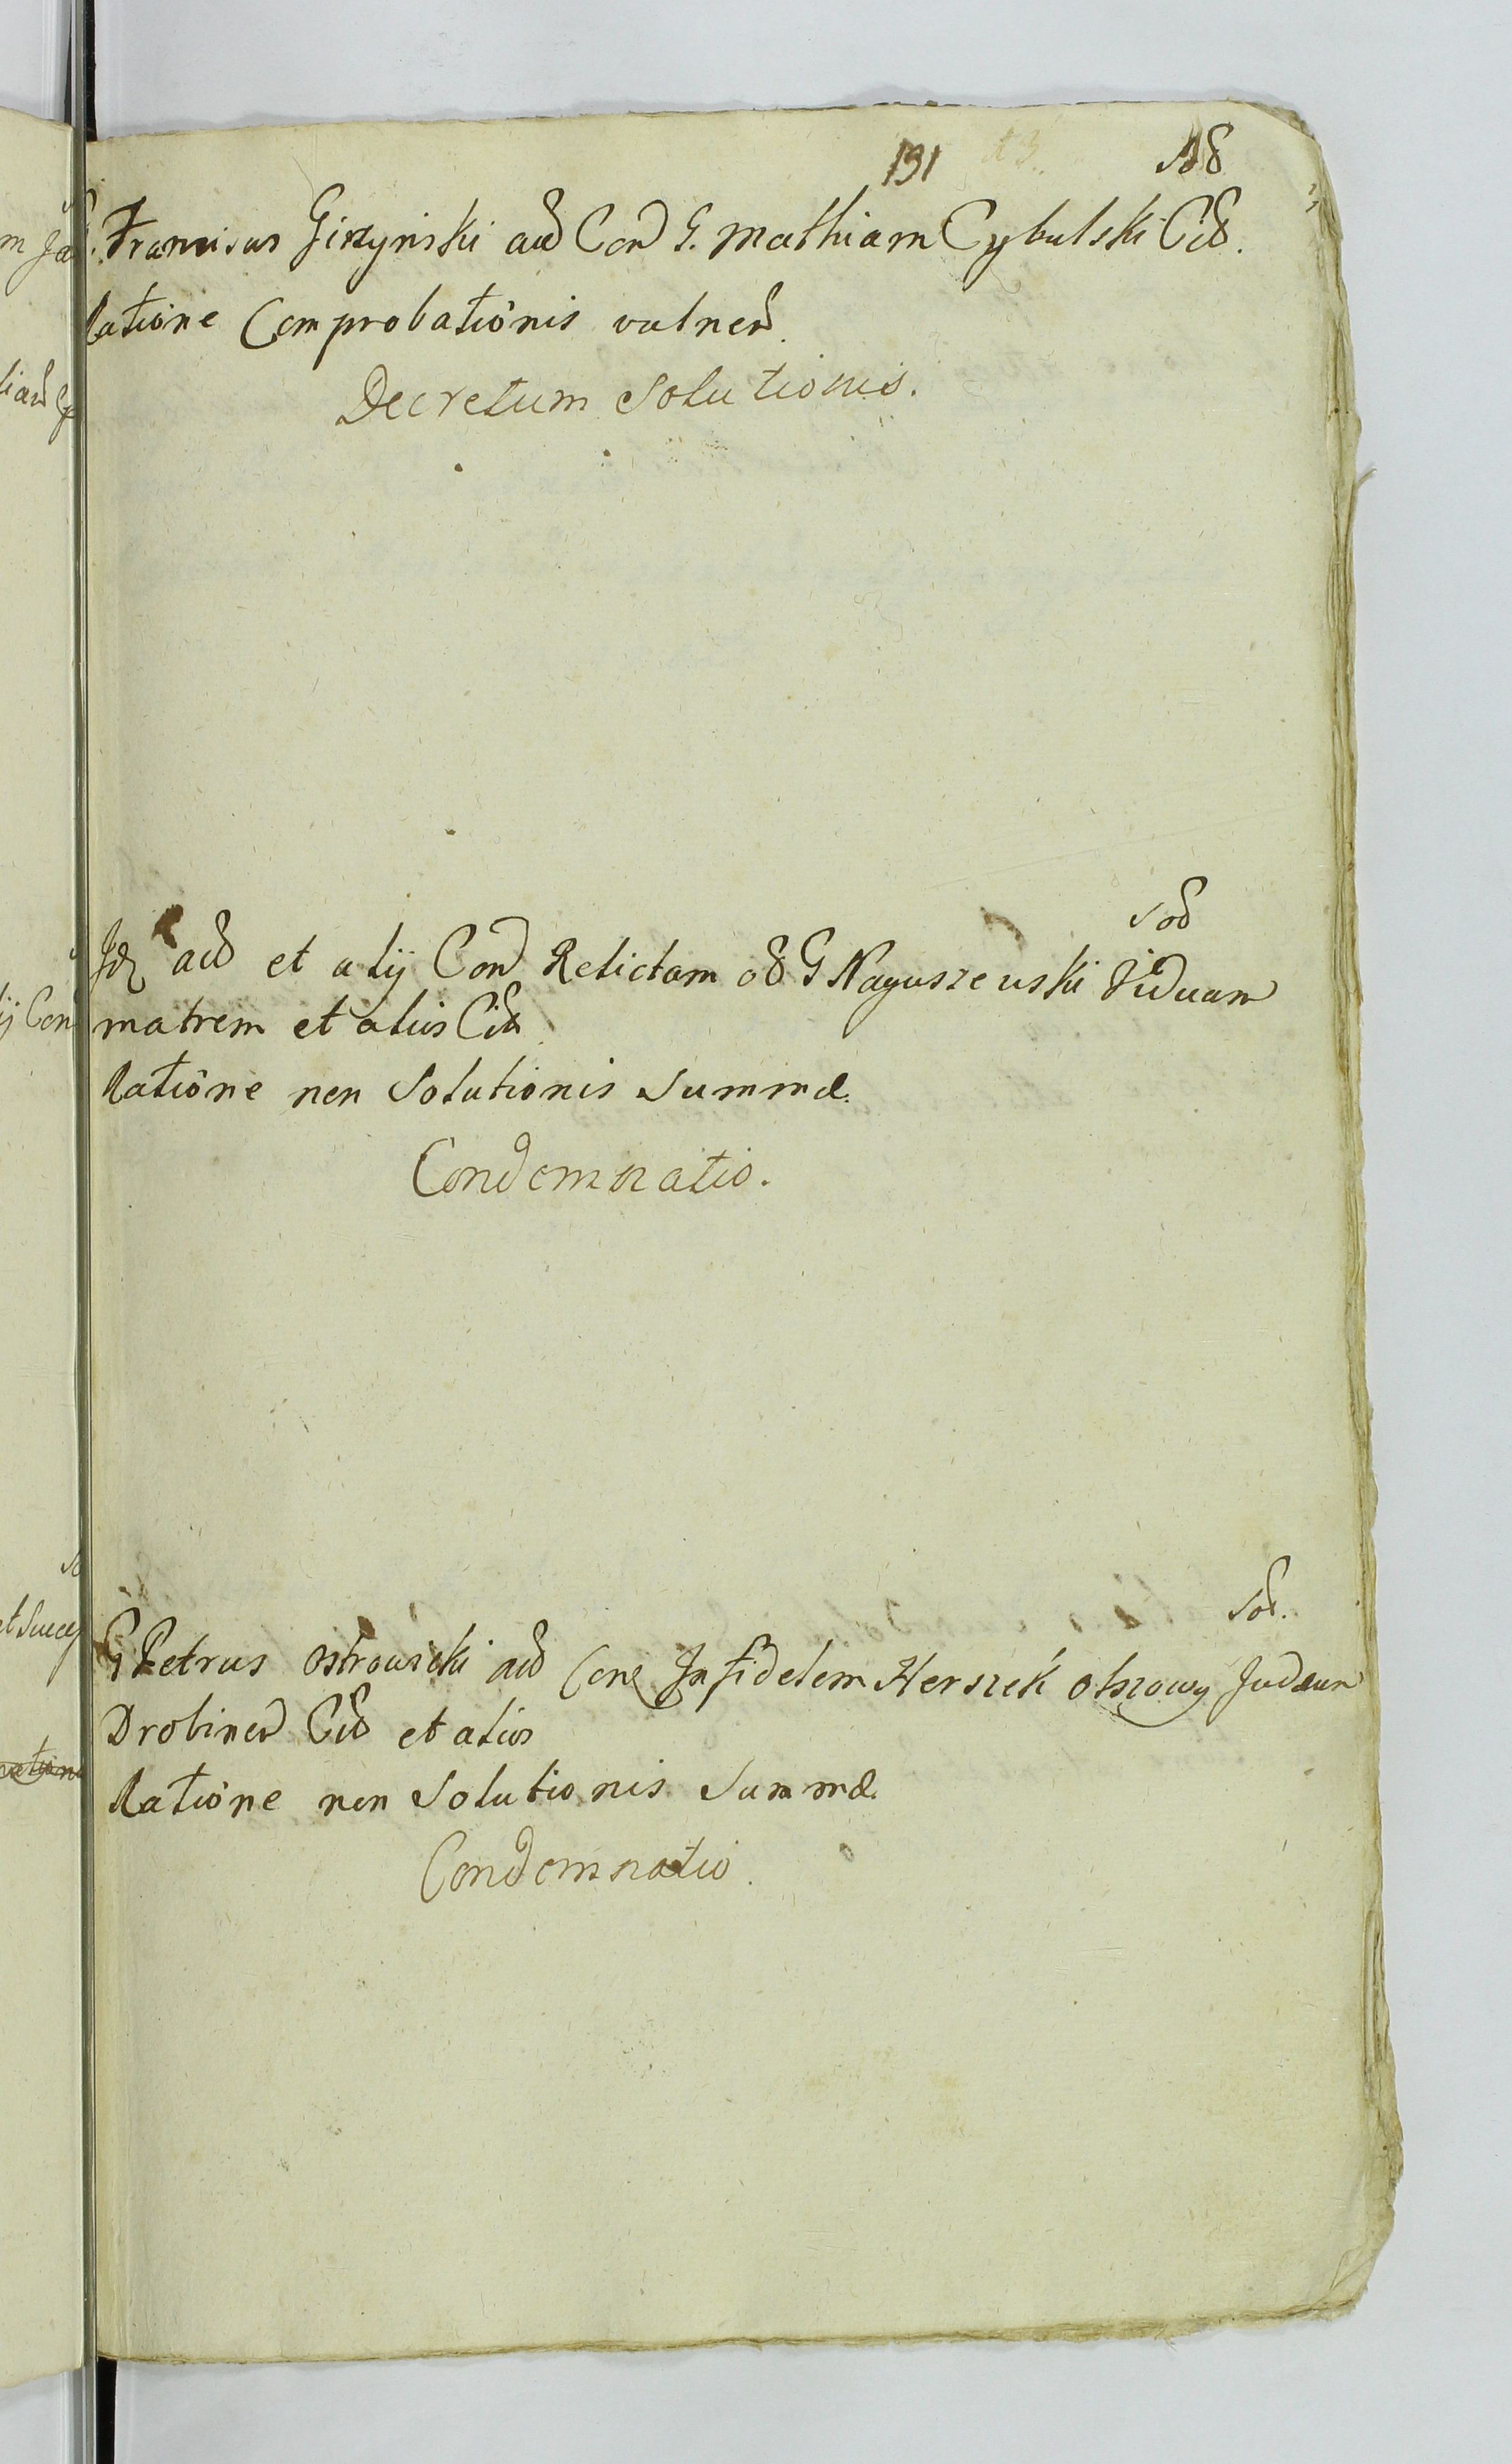 131
G. Franciscus Girzyński acto Con G. Mathiam Cybulski Cito.
Ratione Comprobationis vulner.
Decretum Solutionis.
Sod
Id actor et alij Con Relictam ol G Naguszewski Viduam
matrem et alios Cit
Ratione non Solutionis Summæ.
Condemnatio.
Sod.
G Petrus Ostrowicki act Con Infidelem Herszek Judæum
Drobinen Cit et alios
Ratione non Solutionis Summæ.
Condemnatio.